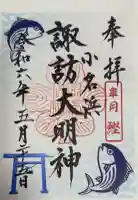 奉拝
皐月
鰹
小名浜
諏訪大明神
令和六年五月五日